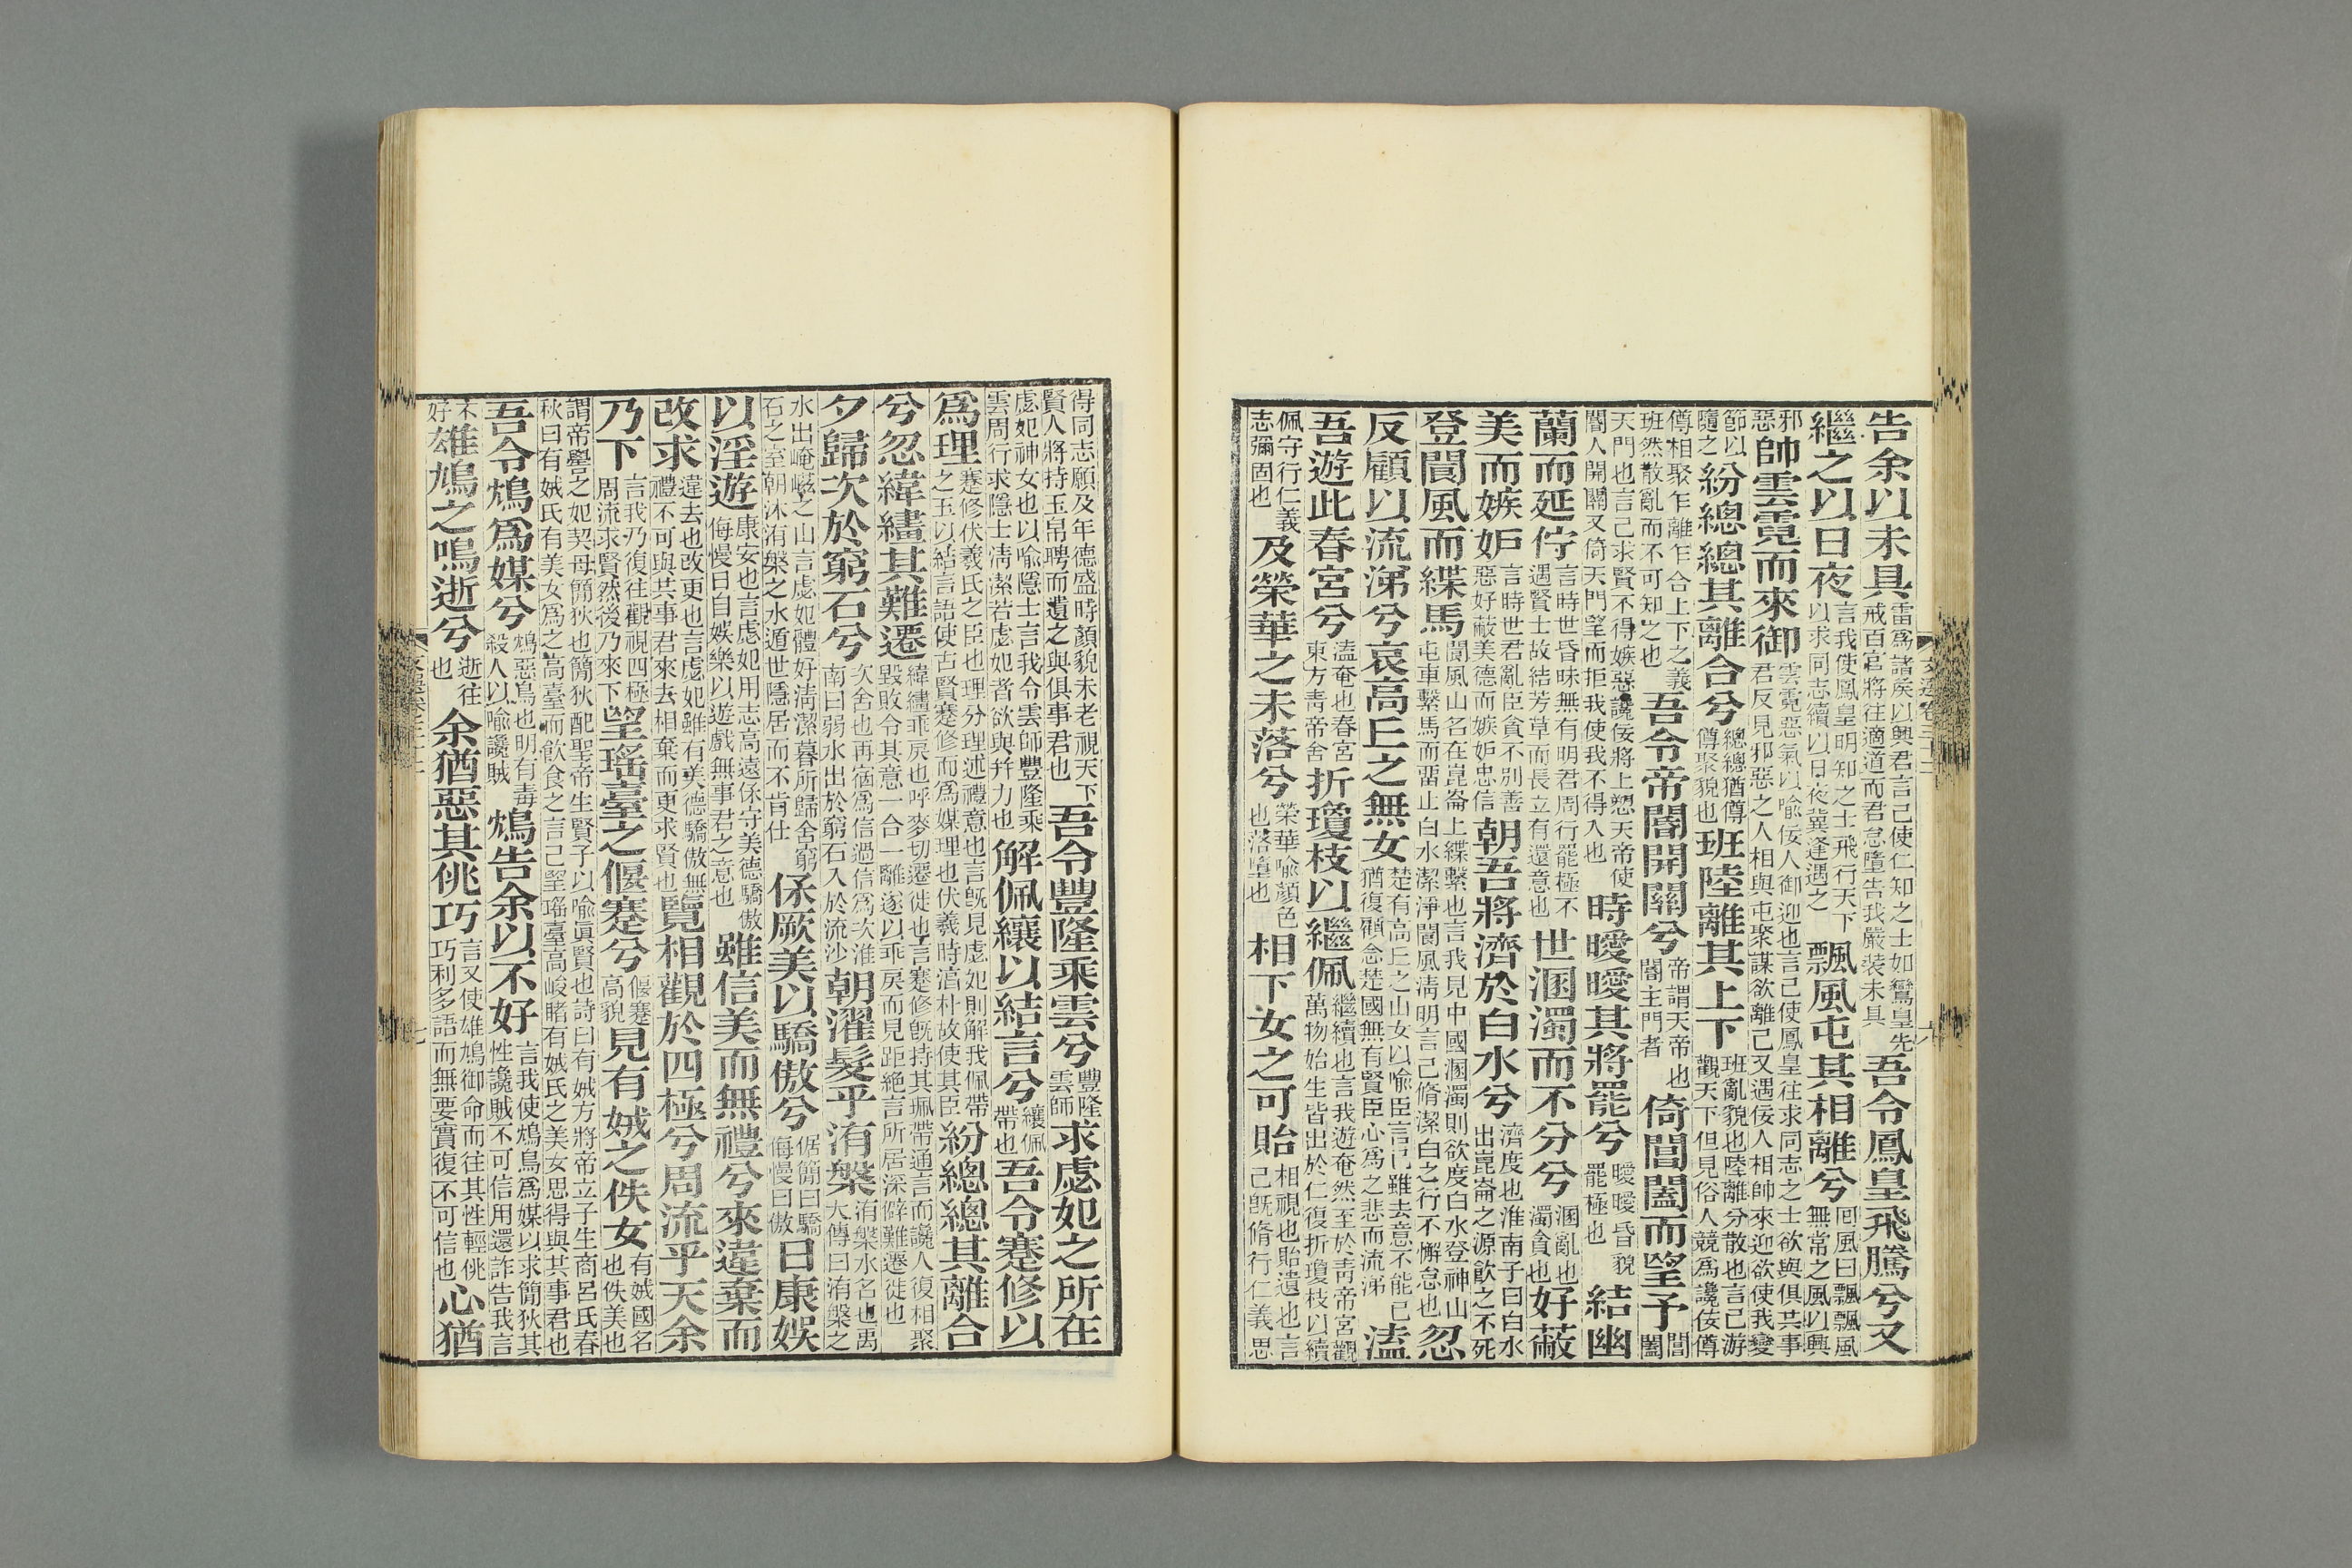 告余以未具雷爲諸侯以興君言己使仁知之士如鸞皇先戒百官將往適道而君怠墮告我嚴裝未具吾令鳳皇飛騰兮又
繼之以日夜言我使鳳皇明知之士飛行天下以求同志續以日夜冀逢遇之飄風屯其相離兮回風曰飄飄風無常之風以興
邪惡帥雲霓而來御雲霓惡氣以喻佞人御迎也言己使鳳皇往求同志之士欲與俱共事君反見邪惡之人相與屯聚謀欲離己又遇佞人相帥來迎欲使我變
節以隨之紛總總其離合兮總總猶僔僔聚貌也班陸離其上下班亂貌也陸離分散也言己游觀天下但見俗人競爲讒佞僔
僔相聚乍離乍合上下之義班然散亂而不可知之也吾令帝閽開關兮帝謂天帝也閽主門者倚閶闔而望予閶闔
天門也言己求賢不得嫉惡讒佞將上愬天帝使閽人開關又倚天門望而拒我使我不得入也時曖曖其將罷兮曖曖昏貌罷極也結幽
蘭而延佇言時世昏昧無有明君周行罷極不遇賢士故結芳草而長立有還意也世溷濁而不分兮溷亂也濁貪也好蔽
美而嫉妒言時世君亂臣貪不別善惡好蔽美德而嫉妒忠信朝吾將濟於白水兮濟度也淮南子曰白水出崑崙之源飲之不死
登閬風而緤馬閬風山名在崑崙上緤繫也言我見中國溷濁則欲度白水登神山屯車繫馬而畱止白水潔淨閬風清明言己脩潔白之行不懈怠也忽
反顧以流涕兮哀高丘之無女楚有高丘之山女以喻臣言己雖去意不能已猶復顧念楚國無有賢臣心爲之悲而流涕溘
吾遊此春宮兮溘奄也春宮東方青帝舍折瓊枝以繼佩繼續也言我遊奄然至於青帝宮觀萬物始生皆出於仁復折瓊枝以續
佩守行仁義志彌固也及榮華之未落兮榮華喻顔色也落墮也相下女之可貽相視也貽遺也言己旣脩行仁義思
得同志願及年德盛時顔貌未老視天下賢人將持玉帛聘而遺之與俱事君也吾令豐隆乘雲兮豐隆雲師求虙妃之所在
虙妃神女也以喻隱士言我令雲師豐隆乘雲周行求隱士清潔若虙妃者欲與幷力也解佩纕以結言兮纕佩帶也吾令蹇修以
爲理蹇修伏羲氏之臣也理分理述禮意也言旣見虙妃則解我佩帶之玉以結言語使古賢蹇修而爲媒理也伏羲時湻朴故使其臣紛總總其離合
兮忽緯繣其難遷緯繣乖戾也呼麥切遷徙也言蹇修旣持其珮帶通言而讒人復相聚毀敗令其意一合一離遂以乖戾而見距絶言所居深僻難遷徙也
夕歸次於窮石兮次舍也再宿爲信過信爲次淮南曰弱水出於窮石入於流沙朝濯髮乎洧槃洧槃水名也禹大傳曰洧槃之
水出崦嵫之山言虙妃體好清潔暮所歸舍窮石之室朝沐洧槃之水遁世隱居而不肯仕保厥美以驕傲兮倨簡曰驕侮慢曰傲日康娛
以淫遊康安也言虙妃用志高遠保守美德驕傲侮慢日自娛樂以遊戲無事君之意也雖信美而無禮兮來違棄而
改求違去也改更也言虙妃雖有美德驕傲無禮不可與共事君來去相棄而更求賢也覽相觀於四極兮周流乎天余
乃下言我乃復往觀視四極周流求賢然後乃來下望瑤臺之偃蹇兮偃蹇高貌見有娀之佚女有娀國名也佚美也
謂帝嚳之妃契母簡狄也簡狄配聖帝生賢子以喻眞賢也詩曰有娀方將帝立子生商呂氏春秋曰有娀氏有美女爲之高臺而飲食之言己望瑤臺高峻睹有娀氏之美女思得與其事君也
吾令鴆爲媒兮鴆惡鳥也明有毒殺人以喻讒賊鴆告余以不好言我使鴆鳥爲媒以求簡狄其性讒賊不可信用還詐告我言
不好雄鳩之鳴逝兮逝往也余猶惡其佻巧言又使雄鳩御命而往其性輕佻巧利多語而無要實復不可信也心猶